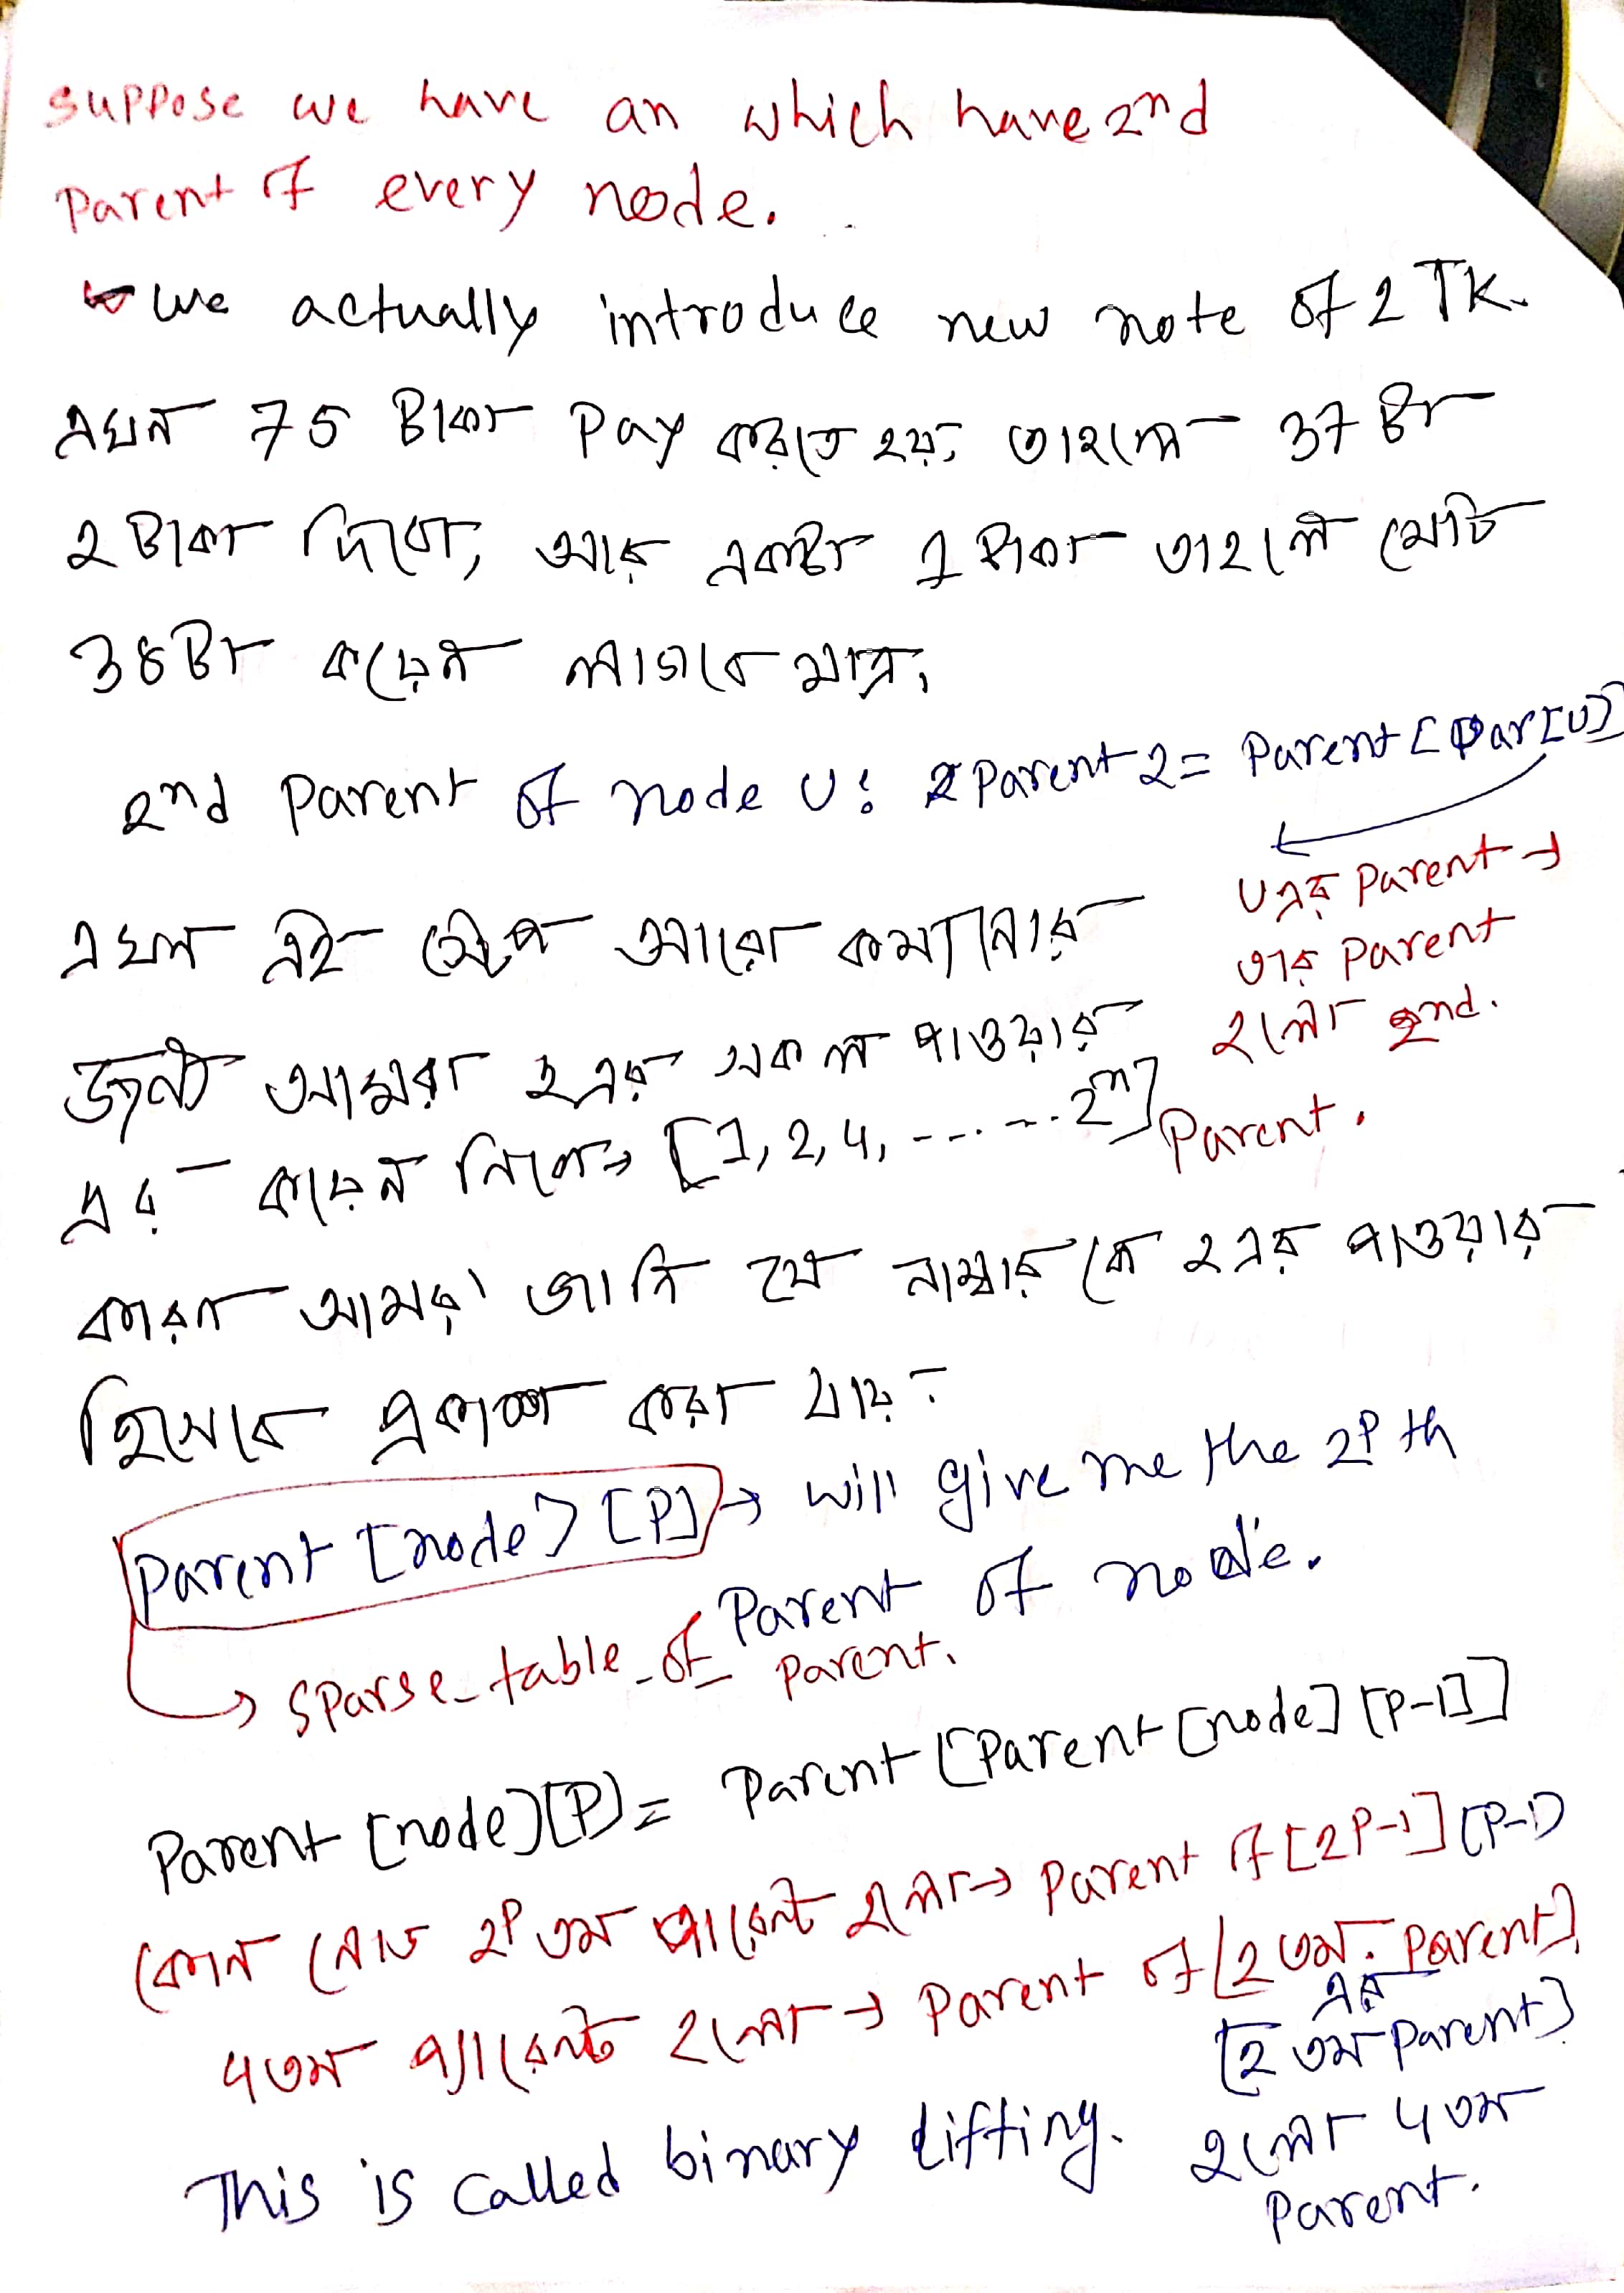 suppose we have an which have 2nd
Parent of every node.
↳ we actually introduce new note of 2 TK.
এখন 75 টাকা Pay করতে হয়, তাহলে 37 টা
2 টাকা দিবো, আর একটা 1 টাকা তাহলে মোট
38 টা কয়েন লাগবে মাত্র,
2nd parent of node U: Parent2 = Parent[Par[U]]
U এর Parent →
তার Parent
হলো 2nd.
Parent.
এখন এই স্টেপ আরো কমানোর
জন্য আমরা 2 এর সকল পাওয়ার
এর কয়েন নিলে → [1, 2, 4, ------ 2ⁿ]
কারন আমরা জানি যে নাম্বার কে 2 এর পাওয়ার
হিসেবে প্রকাশ করা যায়।
Parent [node] [P] → will give me the 2ᴾ th
Parent of node.
↳ sparse_table_of parent.
Parent [node][P] = Parent [Parent [node] [P-1]]
[P-1]
কোন নোড 2ᴾ তম প্যারেন্ট হলো → Parent of [2P-1]
4 তম প্যারেন্ট হলো → Parent of [2 তম Parent]
এর
[2 তম Parent]
হলো 4 তম
Parent.
This is called binary lifting.